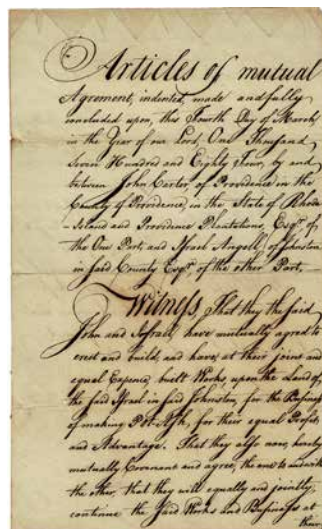 Articles of mutual
Agrement, indented, made and fully
concluded upon, this Fourth Day of March
in the Year of our Lord, One Thousand
Seven Hundred and Eighty Four, by and
between John Carter, of Providence in the
County of Providence, in the State of Rhode
-Island and Providence Plantations, Esqr. of
the One Part, and Israel Angell, of Johnston
in said County Esqr. of the other Part,
Witness, That they the said
John and Israel, have mutually agreed to
erect and build, and have, at their joint and
equal Expence, built Works, upon the Land of
the said Israel in said Johnston, for the Business
of making Pot-Ash, for their equal Profit
and Advantage. That they also now, hereby
mutually Covenant and agree, the one to and with
the other, that they will equally and jointly,
continue the said Works and Business at
their